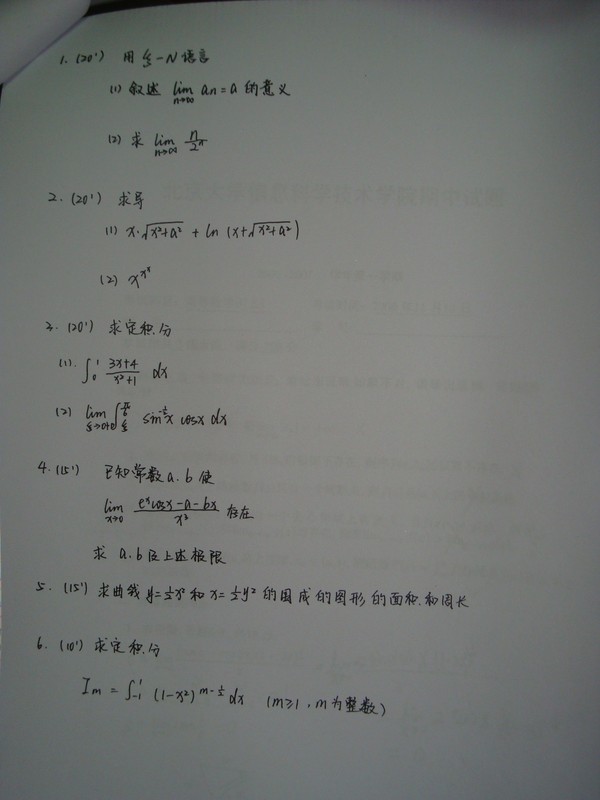 1. (20') 用 ξ-N 语言
(1) 叙述 lim n→∞ an = a 的意义
(2) 求 lim n→∞ n/2ⁿ
2. (20') 求导
(1) x·√(x²+a²) + ln (x+√(x²+a²))
(2) x^x^x
3. (20') 求定积分
(1). ∫₀¹ (3x+4)/(x²+1) dx
(2) lim ξ→0+0 ∫ sin^(-1/2)x cosx dx
4. (15') 已知常数 a.b 使
lim x→0 (eˣcosx-a-bx)/x³ 存在
求 a.b 及上述极限
5. (15') 求曲线 y=½x² 和 x=½y² 的围成的图形的面积.和周长
6. (10') 求定积分
Im = ∫₋₁¹ (1-x²)^(m-½) dx (m≥1, m为整数)